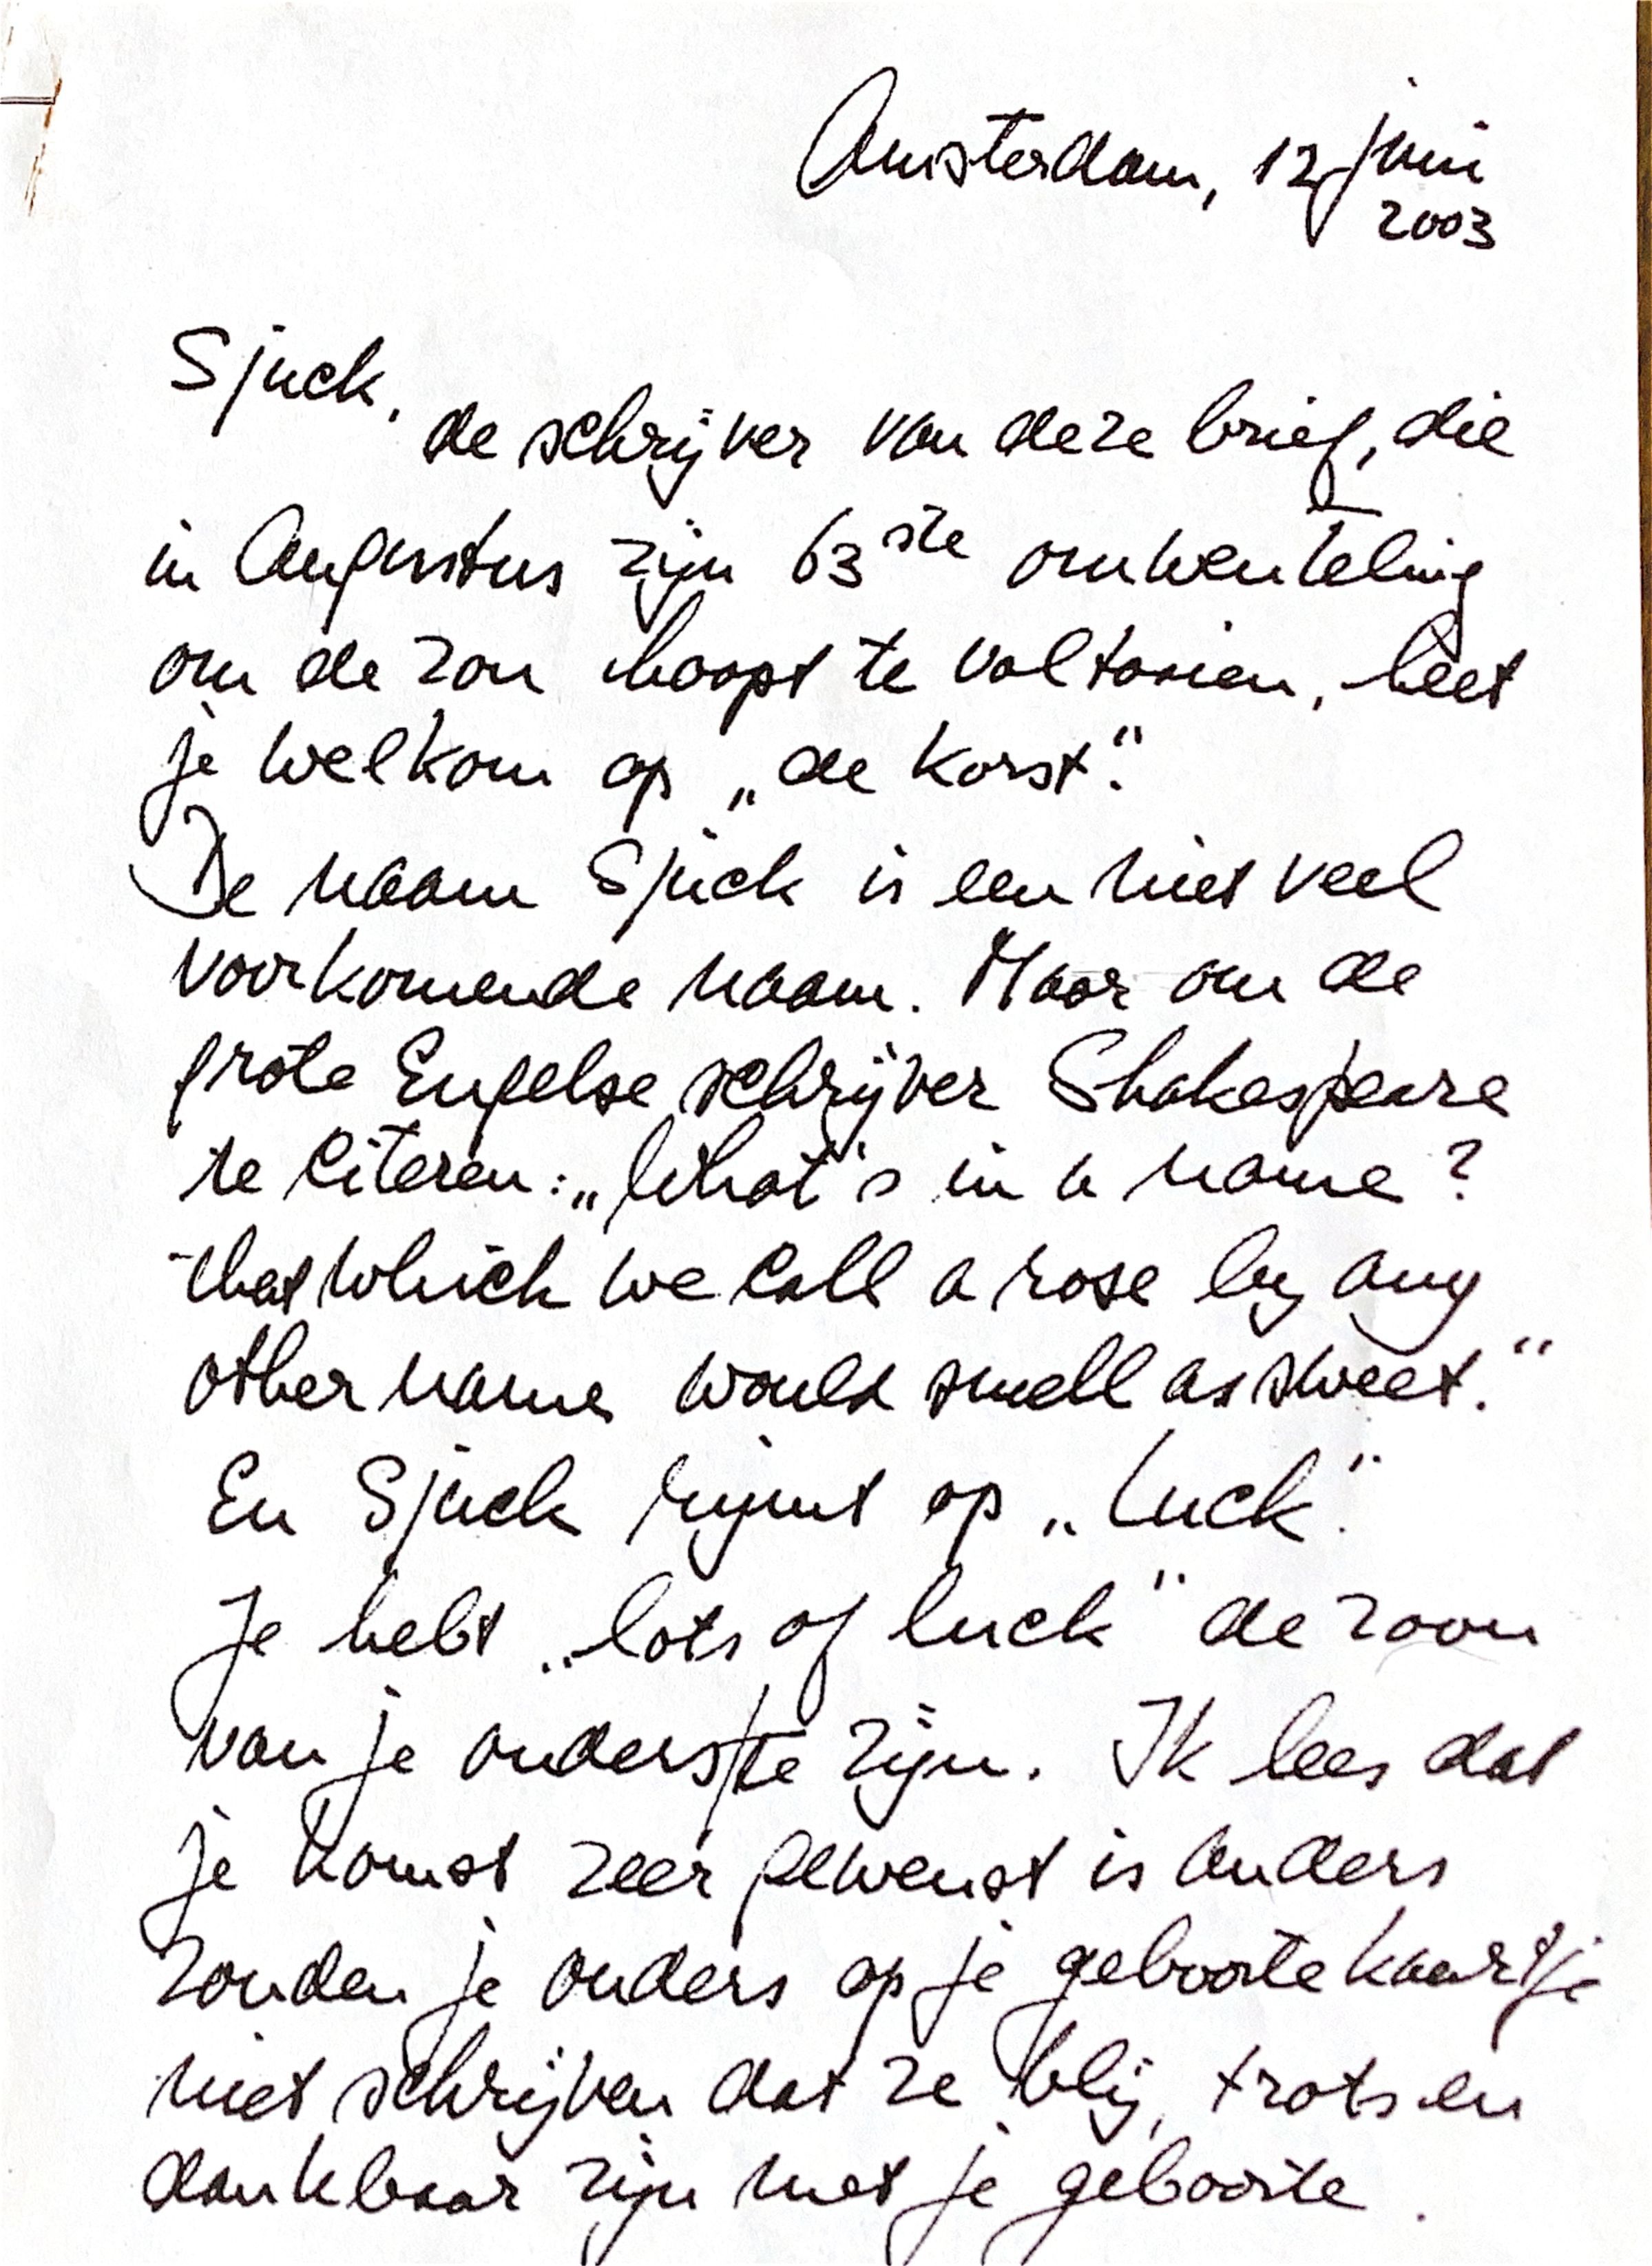 Amsterdam, 12 juni
2003
Sjuck,
de schrijver van deze brief, die
in Augustus zijn 63ste omwenteling
om de zon hoopt te voltooien, heet
je welkom op „de korst“.
De naam Sjuck is een niet veel
voorkomende naam. Maar om de
grote Engelse schrijver Shakespeare
te citeren: „What's in a name?
that which we call a rose by any
other name would smell as sweet.“
En Sjuck rijmt op „luck“.
Je hebt „lots of luck“ de zoon
van je ouders te zijn. Ik lees dat
je komst zeer gewenst is anders
zouden je ouders op je geboortekaartje
niet schrijven dat ze blij, trots en
dankbaar zijn met je geboorte.